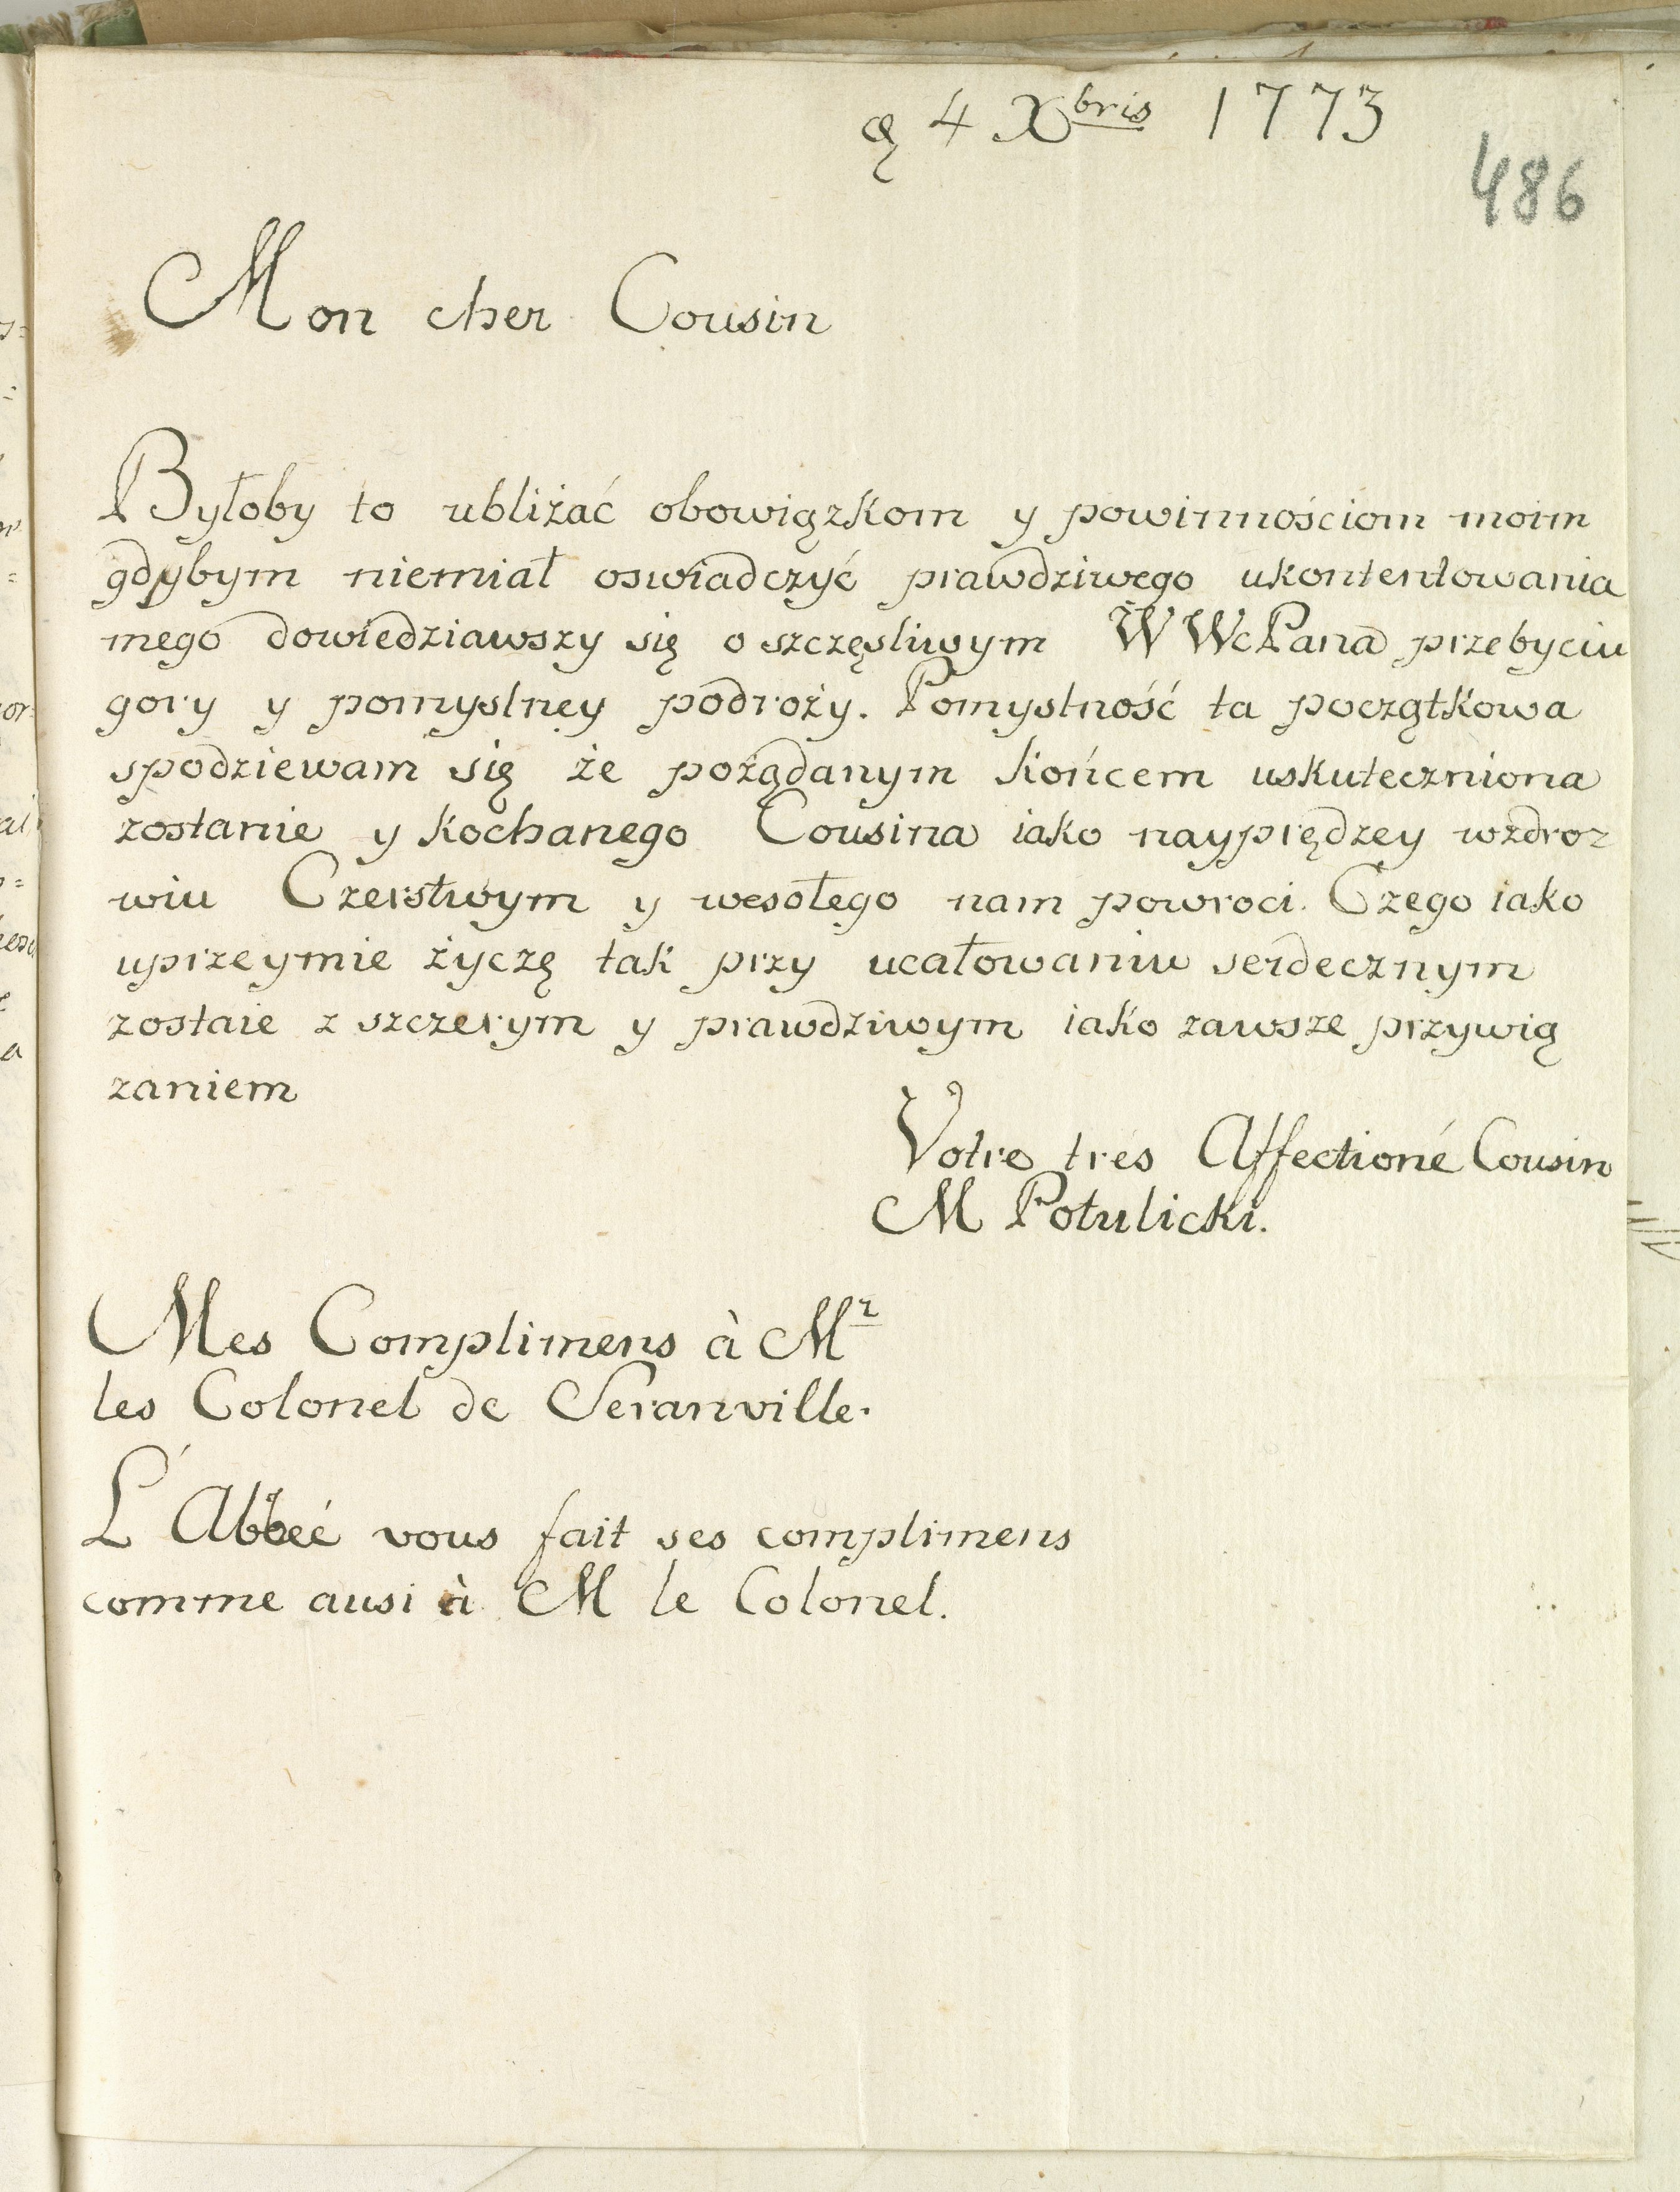 ą 4 Xbris 1773
486
Mon cher Cousin
Byłoby to ubliżać obowiązkom y powinnościom moim
gdybym niemiał oswiadczyć prawdziwego ukontentowania
mego dowiedziawszy się o szczęsliwym W WcPana przebyciu
gory y pomyslney podroży. Pomyslność ta początkowa
spodziewam się że pożądanym końcem uskuteczniona
zostanie y kochanego Cousina iako nayprędzey wzdroz
wiu Czerstwym y wesołego nam powroci. Czego iako
uprzeymie życzę tak przy ucałowaniu serdecznym
zostaie z szczerym y prawdziwym iako zawsze przywią
zaniem
Votre trés Affectioné Cousin
M Potulicki.
Mes Complimens à Mr
les Colonel de Seranville.
L'Abbeé vous fait ses complimens
comme ausi à M le Colonel.